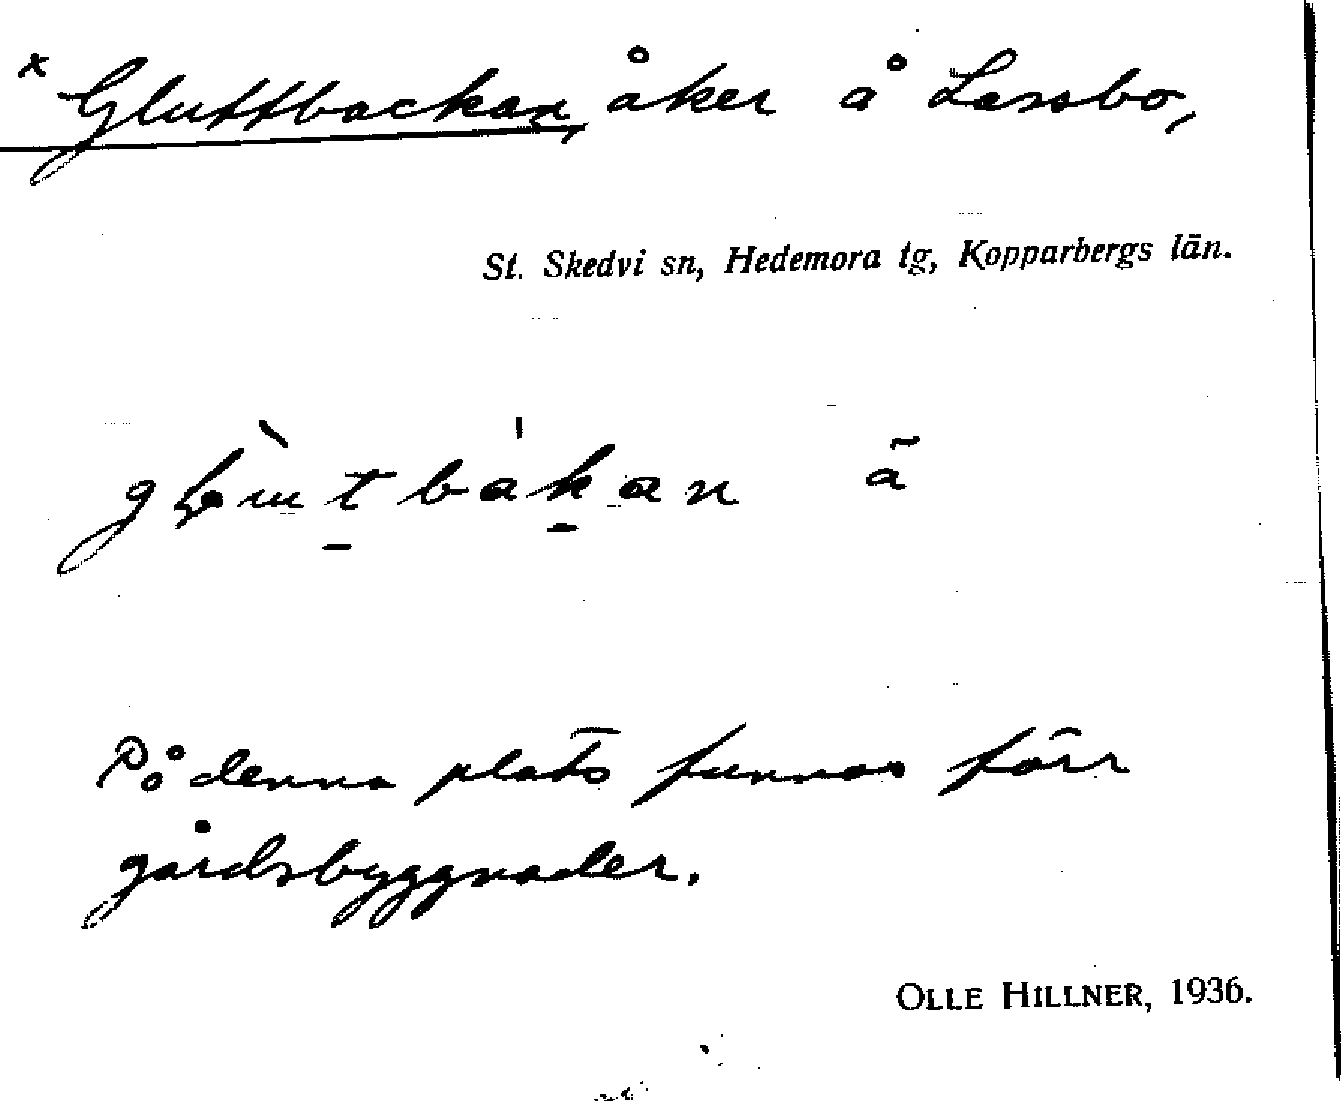 x Gluttbackan, åker å Lassbo,
St. Skedvi sn, Hedemora tg, Kopparbergs län.
På denna plats funnos förr
gårdsbyggnader.
OLLE HILLNER, 1936.